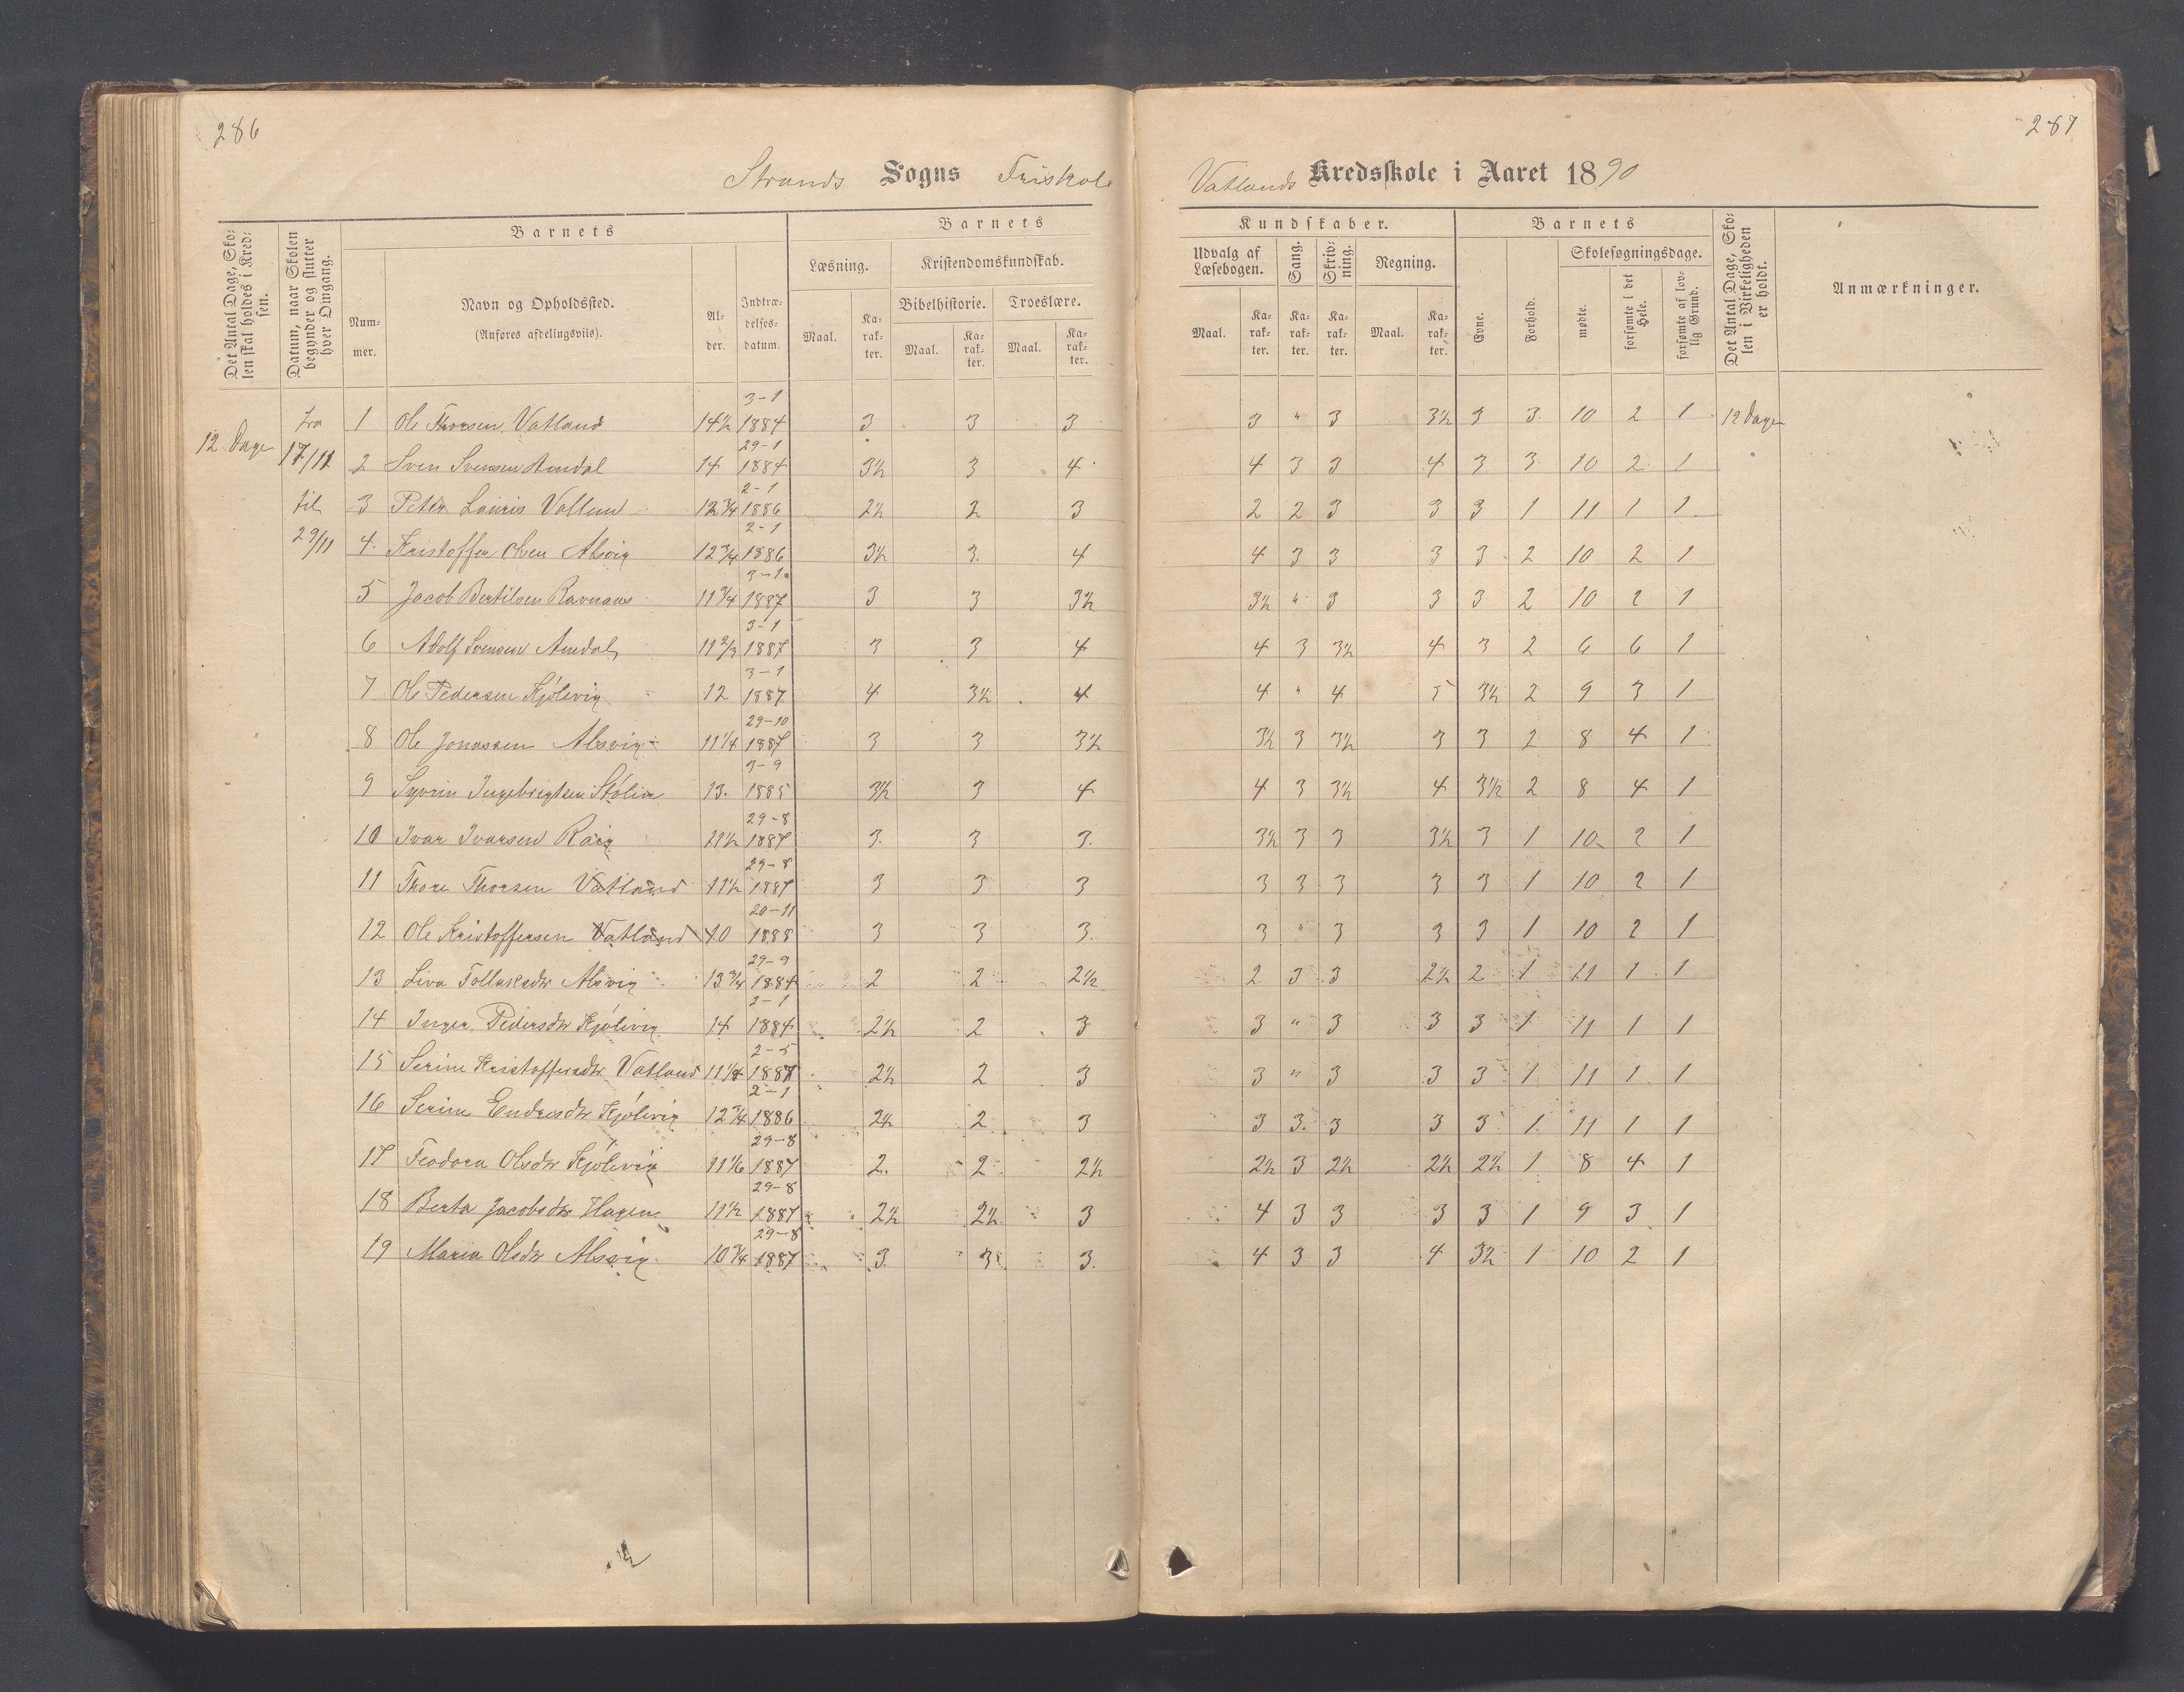 286
287
Strands Sogns Friskole
Vatlands Kredsskole i Aaret 1890
Det Antal Dage, Skolen skal holdes i Kredsen.
Datum, naar Skolen begynder og slutter hver Omgang.
Barnets
Nummer.
Navn og Opholdssted.
(Anføres afdelingsviis).
Alder.
Indtrædelsesdatum.
Barnets
Læsning.
Kristendomskundskab.
Bibelhistorie.
Troeslære.
Maal.
Karakter.
Maal.
Karakter.
Maal.
Karakter.
Kundskaber.
Udvalg af Læsebogen.
Sang.
Skrivning.
Regning.
Maal.
Karakter.
Karakter.
Karakter.
Maal.
Karakter.
Barnets
Evne.
Forhold.
Skolesøgningsdage.
mødte.
forsømte i det Hele.
forsømte af lovlig Grund.
Det Antal Dage, Skolen i Virkeligheden er holdt.
Anmærkninger.
12 Dage
fra 17/11 til 29/11
1 Ole Thorsen Vatland 14½ 3-1 1884 3 3 3 3 " 3 3½ 3 3 10 2 1 12 Dage
2 Sven Svensen Amdal 14 29-1 1884 3½ 3 4 4 3 3 4 3 3 10 2 1
3 Peter Lauris 12¾ 2-1 1886 2½ 2 3 2 2 3 3 3 1 11 1 1
4 Kristoffer Alsvig 12¾ 2-1 1886 3½ 3 4 4 3 3 3 3 2 10 2 1
5 Jacob Bertilsen 11¾ 3-1 1887 3 3 3½ 3½ " 3 3 3 2 10 2 1
6 Adolf Svensen Amdal 11 2/3 3-1 1887 3 3 4 4 3 3½ 4 3 2 6 6 1
7 Ole Pedersen Kjölevig 12 3-1 1887 4 3½ 4 4 " 4 5 3½ 2 9 3 1
8 Ole Jonassen Alsvig 11¼ 29-10 1887 3 3 3½ 3½ 3 3½ 3 3 2 8 4 1
9 Ingebrigtsen 13 3-9 1885 3½ 3 4 4 3 3½ 4 3½ 2 8 4 1
10 Ivar Ivarsen 11½ 29-8 1887 3 3 3 3½ 3 3 3½ 3 1 10 2 1
11 Thore Thorsen Vatland 11½ 29-8 1887 3 3 3 3 3 3 3 3 1 10 2 1
12 Ole Kristoffersen Vatland 10 20-11 1888 3 3 3 3 " 3 3 3 1 10 2 1
13 Liva Tollaksdtr Alsvig 13¾ 29-9 1884 2 2 2½ 2 3 3 2½ 2 1 11 1 1
14 Inger Pedersdtr Kjölevig 14 2-1 1884 2½ 2 3 3 " 3 3 3 1 11 1 1
15 Serine Kristoffersdtr Vatland 2-5 1887 2½ 2 3 3 " 3 3 3 1 11 1 1
16 Serine Endresdtr Kjölevig 12¾ 2-1 1886 2½ 2 3 3 3 3 3 3 1 11 1 1
17 Teodora Olsdtr Kjölevig 11 1/6 29-8 1887 2 2 2½ 2½ 3 2½ 2½ 2½ 1 8 4 1
18 Berta Jacobsdtr Hagen 11½ 29-8 1887 2½ 2½ 3 4 3 3 3 3 1 9 3 1
19 Maria Olsdtr Alsvig 10¾ 29-8 1887 3 3 3 4 3 3 4 3½ 1 10 2 1